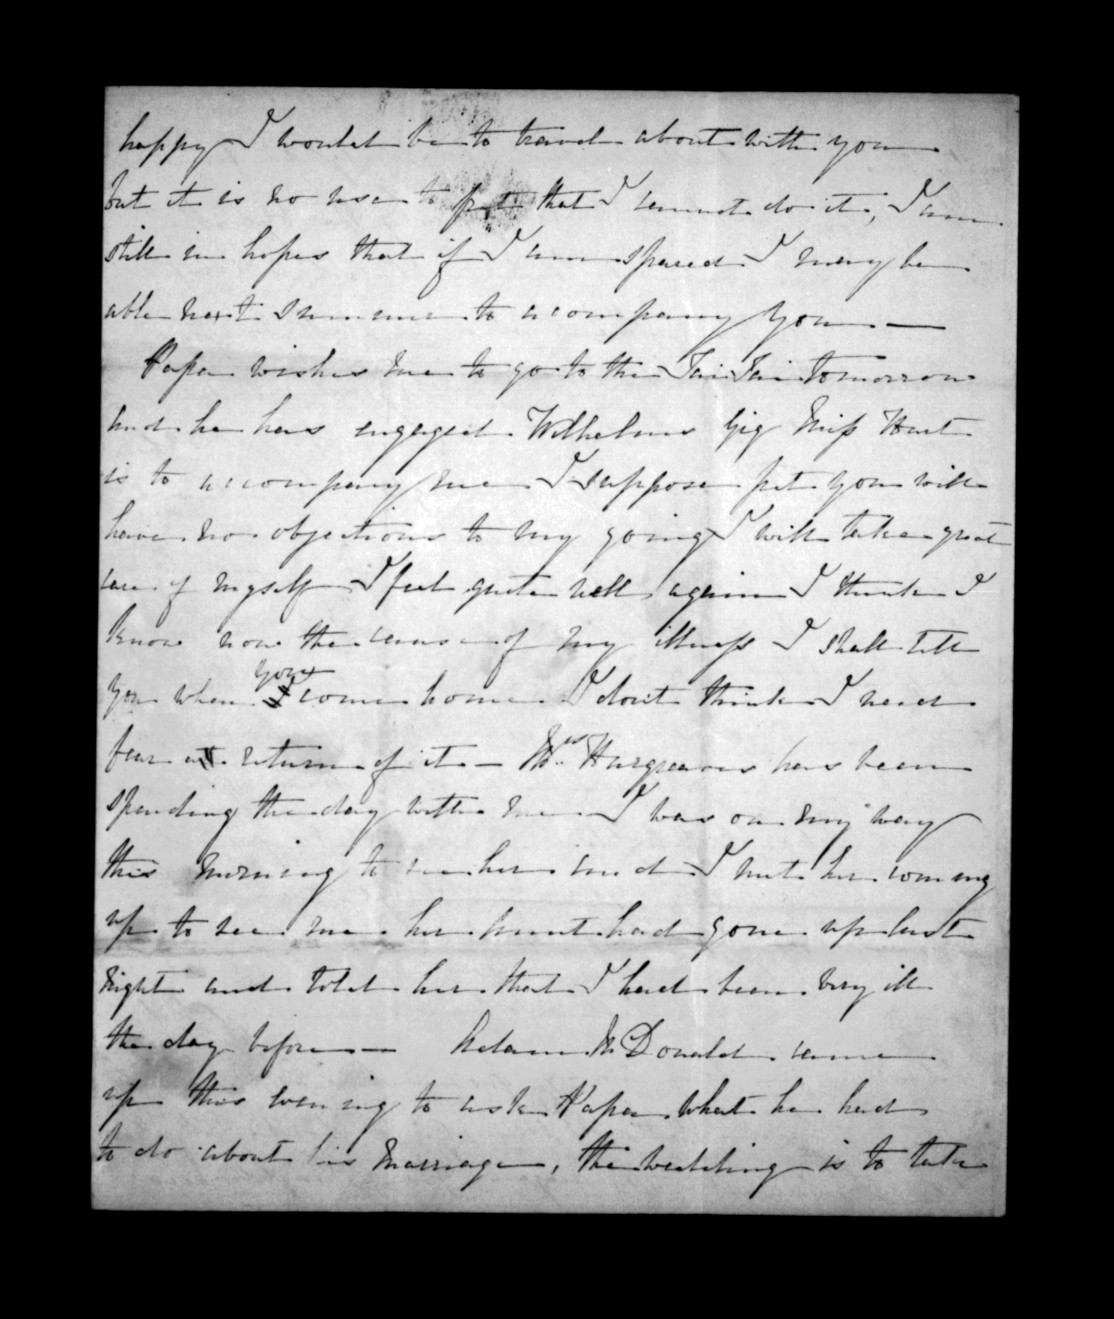 happy I would be to travel about with you
but it is no use to fret that I cannot do it, I am
still in hopes that if I am spared I may be
able next summer to acompany you —
Papa wishes me to go to the Tai Tai tomorrow
and he has engaged Wilhelms Gig Miss Hart
is to accompany me I suppose pet you will
have no objections to my going I will take great
care of myself I feel quite well again I think I
know now the cause of my illness I shall tell
you when you come home I dont think I need
fear a return of it — Mrs Hargreaves has been
spending the day with me I was on my way
this morning to see her and I met her coming
up to see me her Aunt had gone up last
night and told her that I had been very ill
the day before — Adam McDonald came
up this evening to ask Papa what he had
to do about his Marriage, the wedding is to take